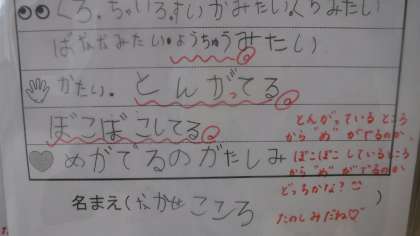 くろ。ちゃいろ。すいかみたい。くちみたい
ばななみたい。ようちゅうみたい
かたい。とんがってる
ぼこぼこしてる
めがでるのがたしみ
とんがっているところ
から"め"がでるのか
ぼこぼこしているところ
から"め"がでるのか
どっちかな?
たのしみだね♡
名まえ(なかせこころ)